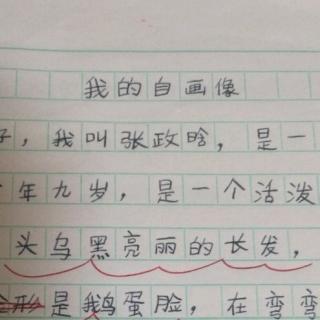 我的自画像
好，我叫张政晗，是一
年九岁，是一个活泼
头乌黑亮丽的长发，
是鹅蛋脸，在弯弯